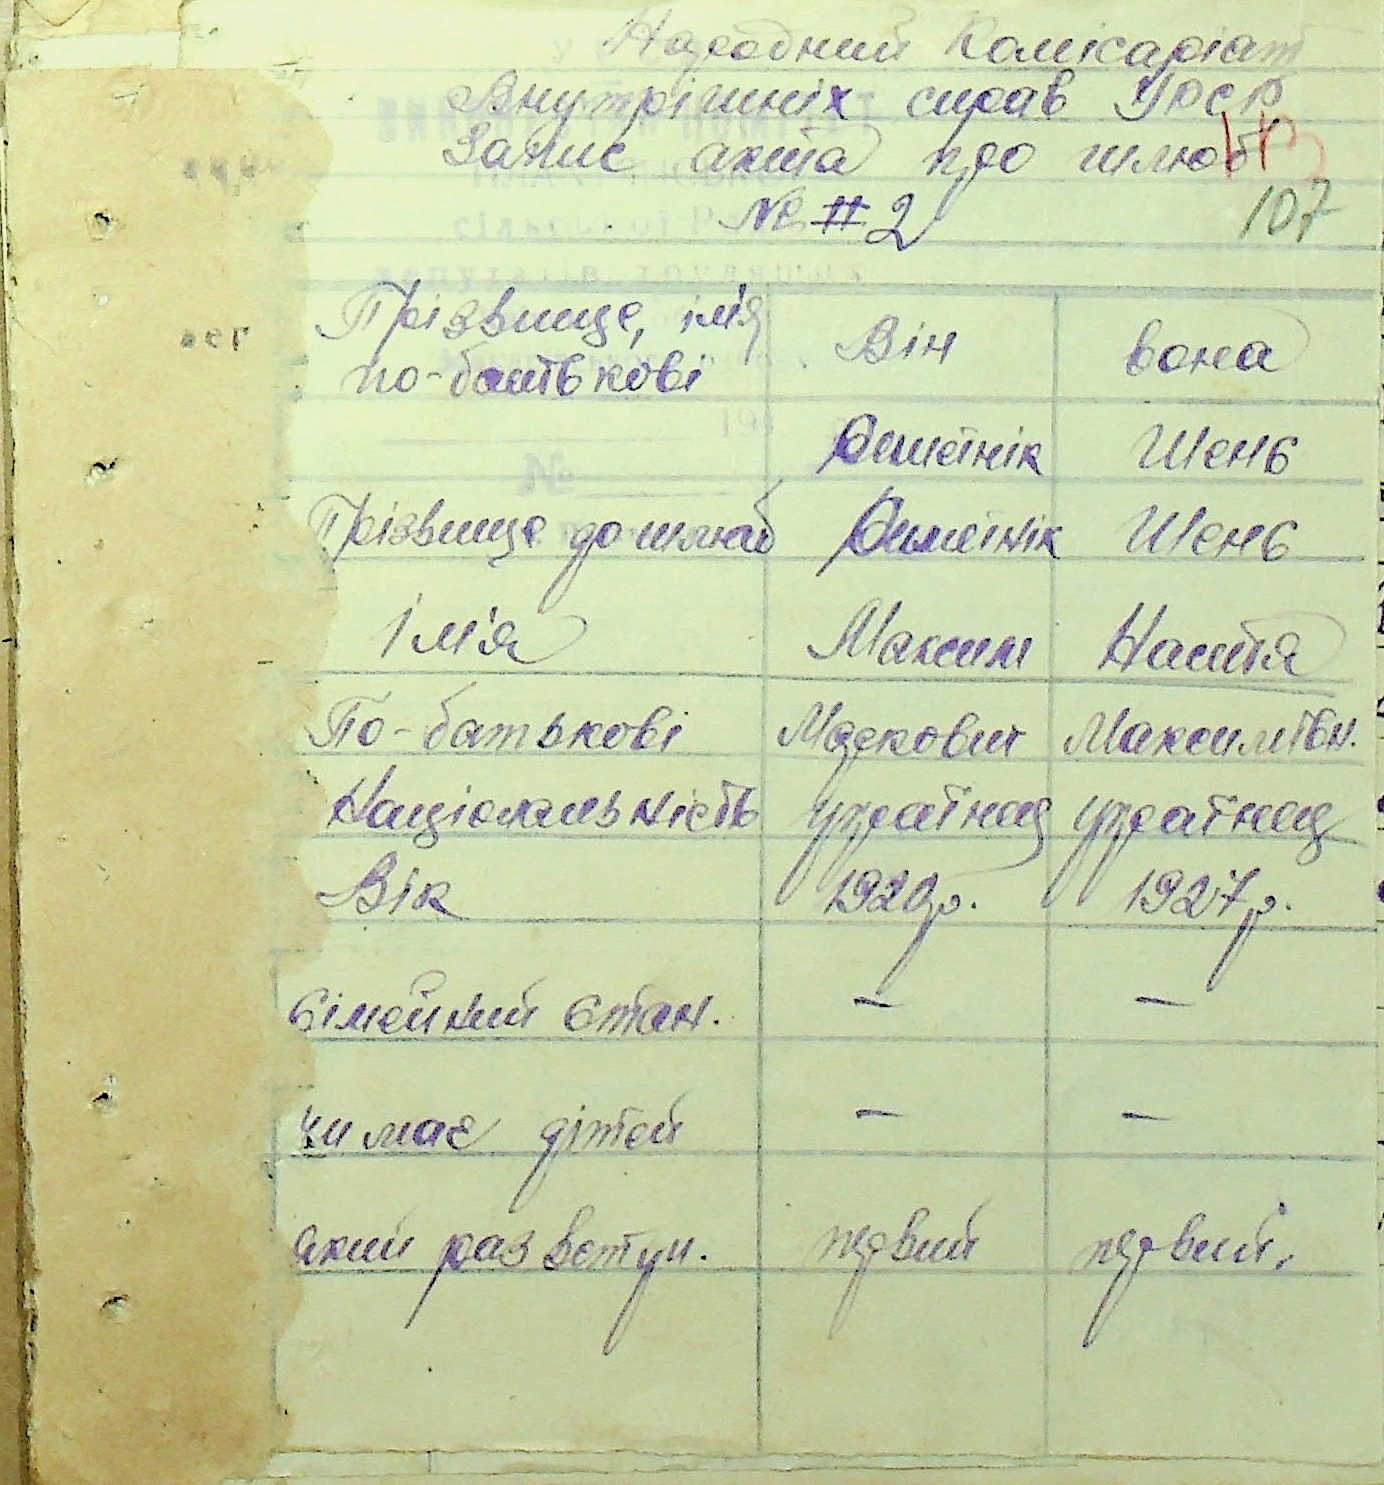 Народний Комісаріат
Внутрішніх справ УРСР
Запис акта про шлюб
№ 2
107
Прізвище, ім'я по-батькові Він вона
Олійнік Шень
Прізвище до шлюб Олійнік Шень
Ім'я Максим Настя
По-батькові Маркович Максимівн.
Національність українец українец
Вік 1920р. 1927р.
Сімейний стан. — —
чи має дітей — —
який раз вступ. первий первий.